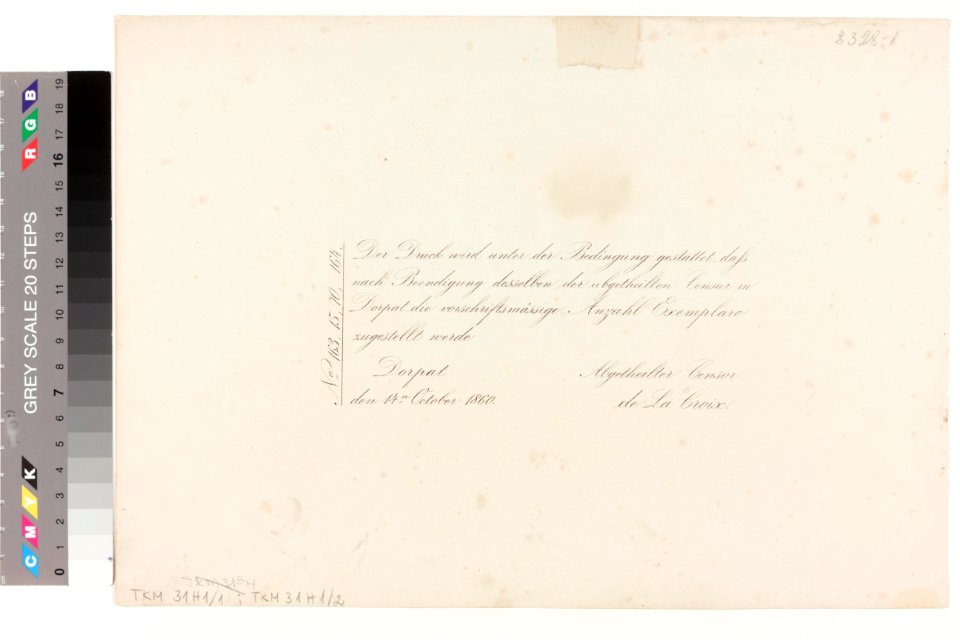 8328-1
Der Druck wird unter der Bedingung gestattet, daß
nach Beendigung desselben der abgetheilten Censur in
Dorpat die vorschriftsmässige Anzahl Exemplare
zugestellt werde
Dorpat
den 14ten October 1860.
Abgetheilter Censor
de La Croix.
No 163, 15, 10, 164.
TKM 31 H
TKM 31H1/1 ; TKM 31H1/2
GREY SCALE 20 STEPS
R G B
C M Y K
0 1 2 3 4 5 6 7 8 9 10 11 12 13 14 15 16 17 18 19